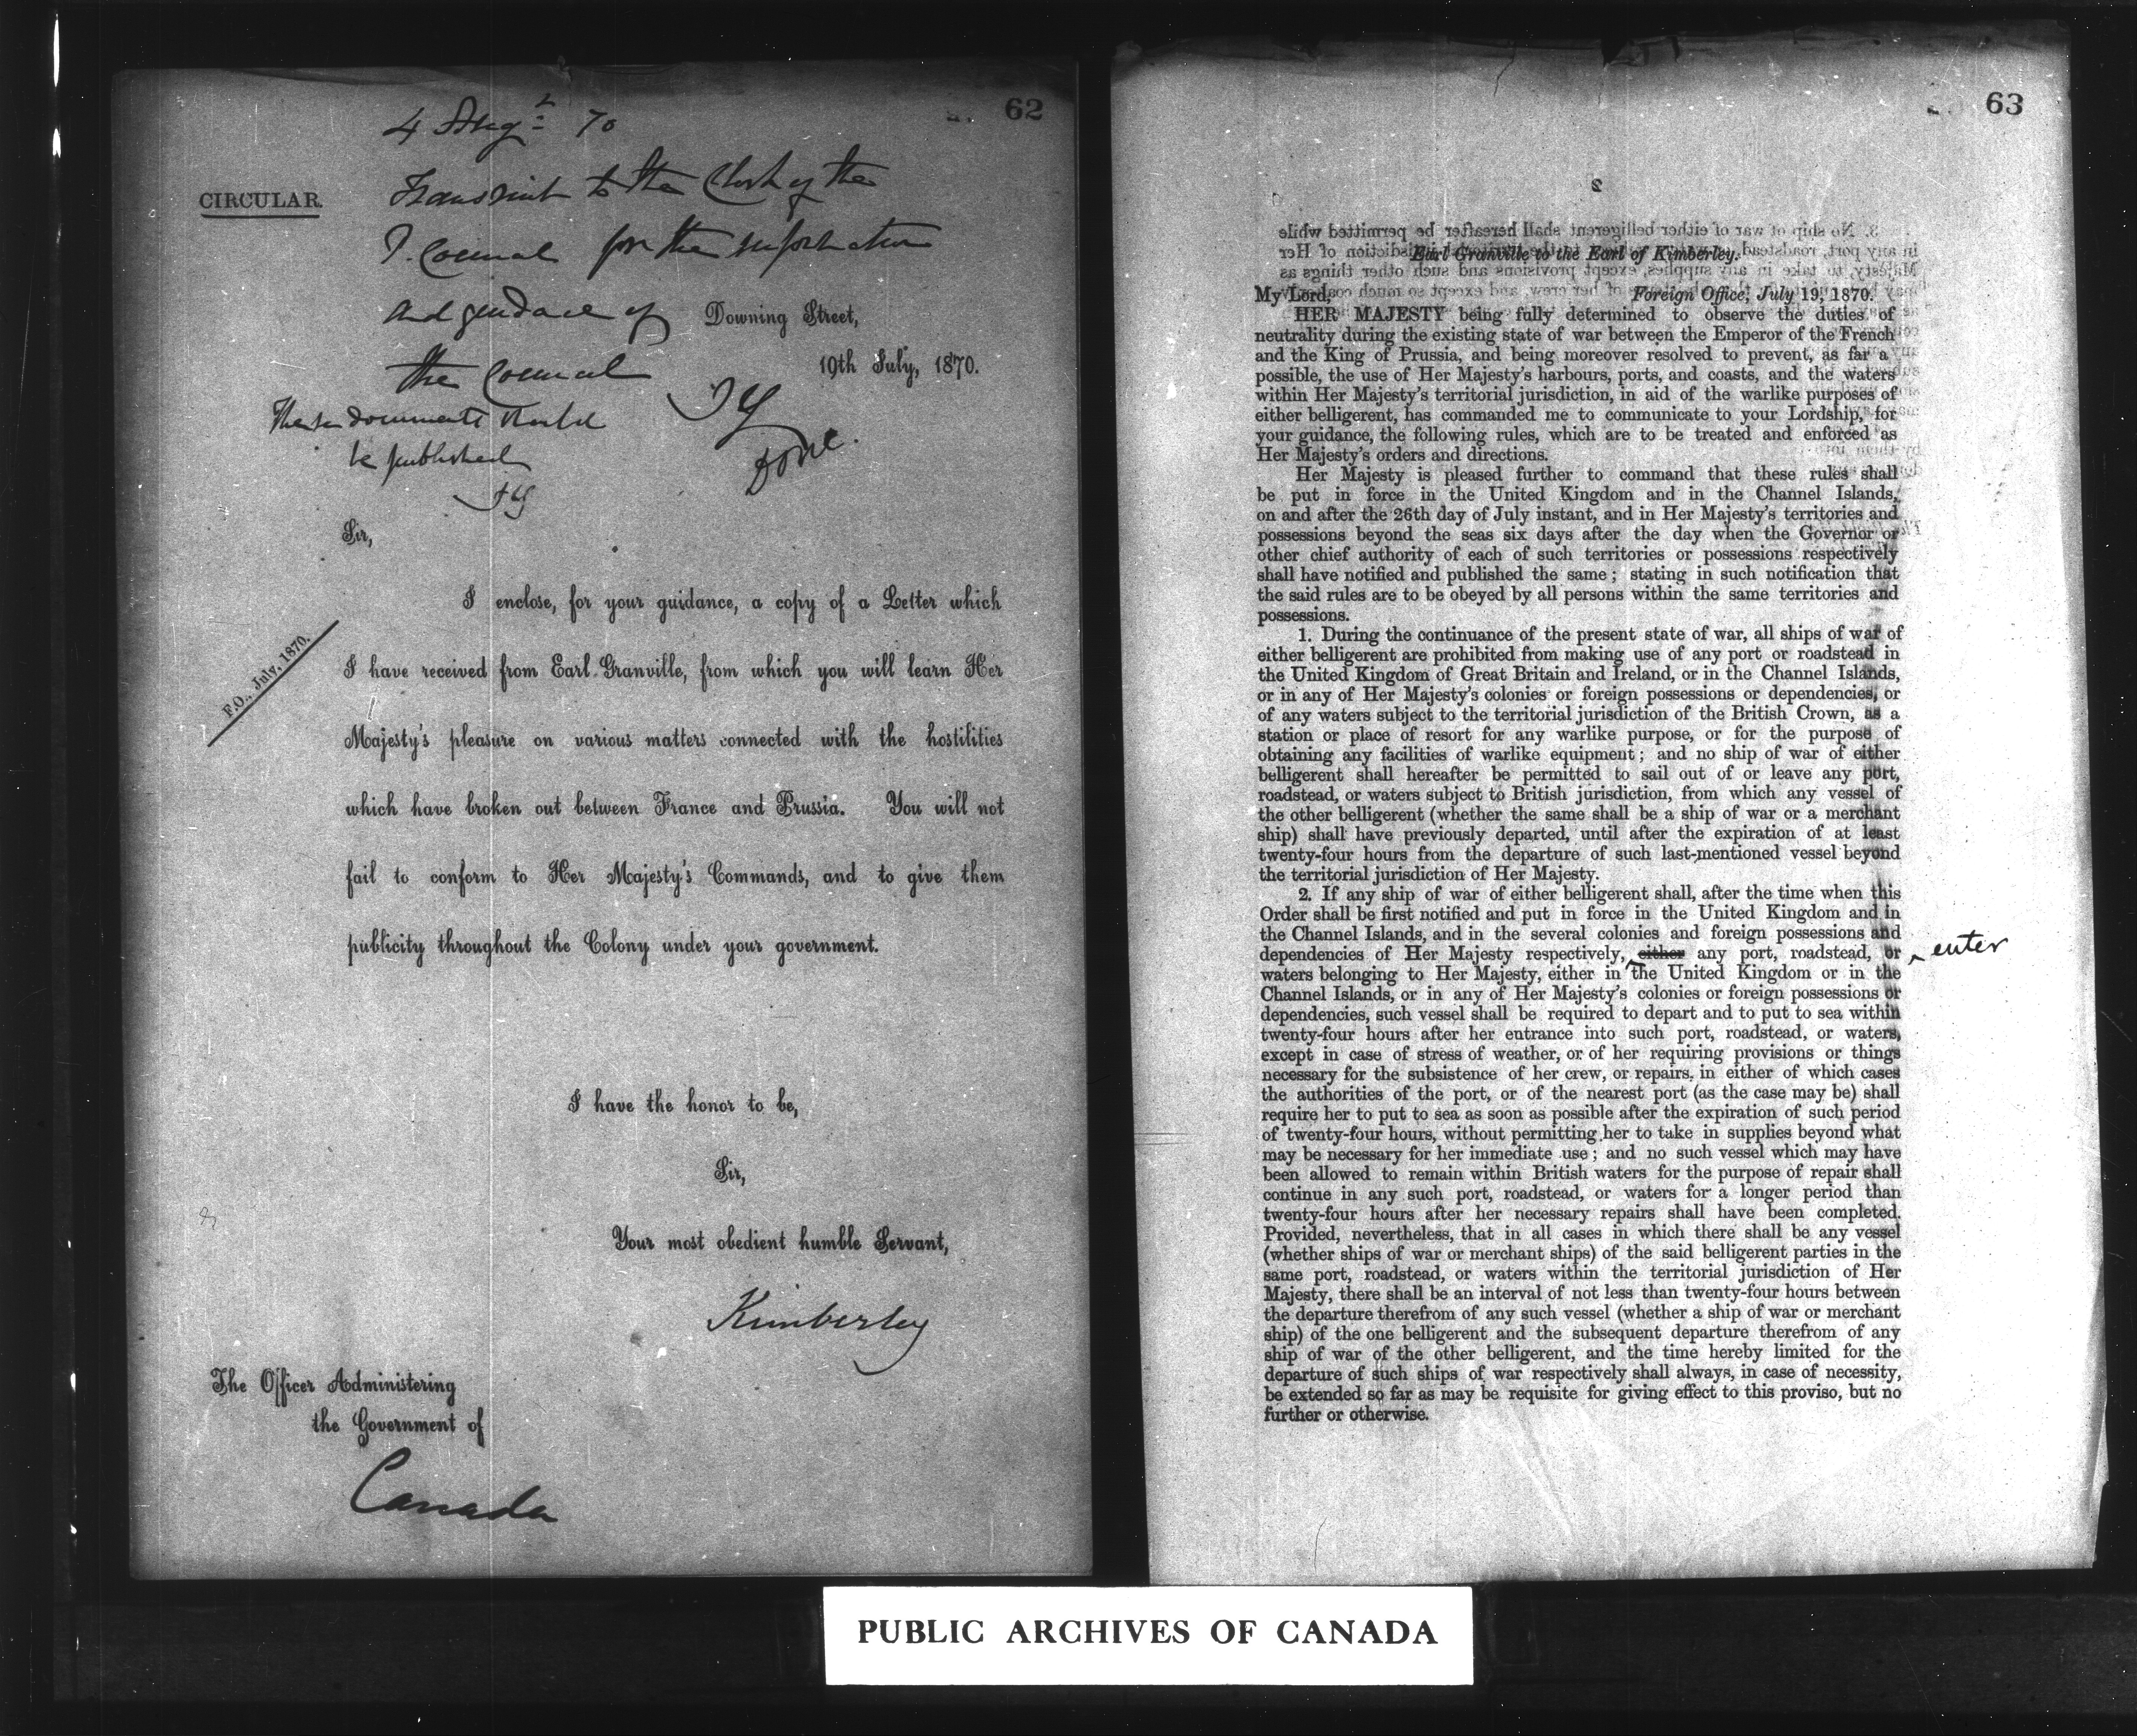 62
4 Augt 70
CIRCULAR.
Transmit to the Clerk of the
P. Council for the information
and guidance of
the Council
Downing Street,
19th July, 1870.
These documents should
be published
done.
Sir,
I enclose, for your guidance, a copy of a Letter which
F.O., July, 1870.
I have received from Earl Granville, from which you will learn Her
Majesty's pleasure on various matters connected with the hostilities
which have broken out between France and Prussia. You will not
fail to conform to Her Majesty's Commands, and to give them
publicity throughout the Colony under your government.
I have the honor to be,
Sir,
Your most obedient humble Servant,
Kimberley
The Officer Administering
the Government of
Canada
63
Earl Granville to the Earl of Kimberley.
My Lord, Foreign Office, July 19, 1870.
HER MAJESTY being fully determined to observe the duties of
neutrality during the existing state of war between the Emperor of the French
and the King of Prussia, and being moreover resolved to prevent, as far a
possible, the use of Her Majesty's harbours, ports, and coasts, and the waters
within Her Majesty's territorial jurisdiction, in aid of the warlike purposes of
either belligerent, has commanded me to communicate to your Lordship, for
your guidance, the following rules, which are to be treated and enforced as
Her Majesty's orders and directions.
Her Majesty is pleased further to command that these rules shall
be put in force in the United Kingdom and in the Channel Islands,
on and after the 26th day of July instant, and in Her Majesty's territories and
possessions beyond the seas six days after the day when the Governor or
other chief authority of each of such territories or possessions respectively
shall have notified and published the same; stating in such notification that
the said rules are to be obeyed by all persons within the same territories and
possessions.
1. During the continuance of the present state of war, all ships of war of
either belligerent are prohibited from making use of any port or roadstead in
the United Kingdom of Great Britain and Ireland, or in the Channel Islands,
or in any of Her Majesty's colonies or foreign possessions or dependencies, or
of any waters subject to the territorial jurisdiction of the British Crown, as a
station or place of resort for any warlike purpose, or for the purpose of
obtaining any facilities of warlike equipment; and no ship of war of either
belligerent shall hereafter be permitted to sail out of or leave any port,
roadstead, or waters subject to British jurisdiction, from which any vessel of
the other belligerent (whether the same shall be a ship of war or a merchant
ship) shall have previously departed, until after the expiration of at least
twenty-four hours from the departure of such last-mentioned vessel beyond
the territorial jurisdiction of Her Majesty.
2. If any ship of war of either belligerent shall, after the time when this
Order shall be first notified and put in force in the United Kingdom and in
the Channel Islands, and in the several colonies and foreign possessions and
dependencies of Her Majesty respectively, either any port, roadstead, or enter
waters belonging to Her Majesty, either in the United Kingdom or in the
Channel Islands, or in any of Her Majesty's colonies or foreign possessions or
dependencies, such vessel shall be required to depart and to put to sea within
twenty-four hours after her entrance into such port, roadstead, or waters,
except in case of stress of weather, or of her requiring provisions or things
necessary for the subsistence of her crew, or repairs, in either of which cases
the authorities of the port, or of the nearest port (as the case may be) shall
require her to put to sea as soon as possible after the expiration of such period
of twenty-four hours, without permitting her to take in supplies beyond what
may be necessary for her immediate use; and no such vessel which may have
been allowed to remain within British waters for the purpose of repair shall
continue in any such port, roadstead, or waters for a longer period than
twenty-four hours after her necessary repairs shall have been completed.
Provided, nevertheless, that in all cases in which there shall be any vessel
(whether ships of war or merchant ships) of the said belligerent parties in the
same port, roadstead, or waters within the territorial jurisdiction of Her
Majesty, there shall be an interval of not less than twenty-four hours between
the departure therefrom of any such vessel (whether a ship of war or merchant
ship) of the one belligerent and the subsequent departure therefrom of any
ship of war of the other belligerent, and the time hereby limited for the
departure of such ships of war respectively shall always, in case of necessity,
be extended so far as may be requisite for giving effect to this proviso, but no
further or otherwise.
PUBLIC ARCHIVES OF CANADA